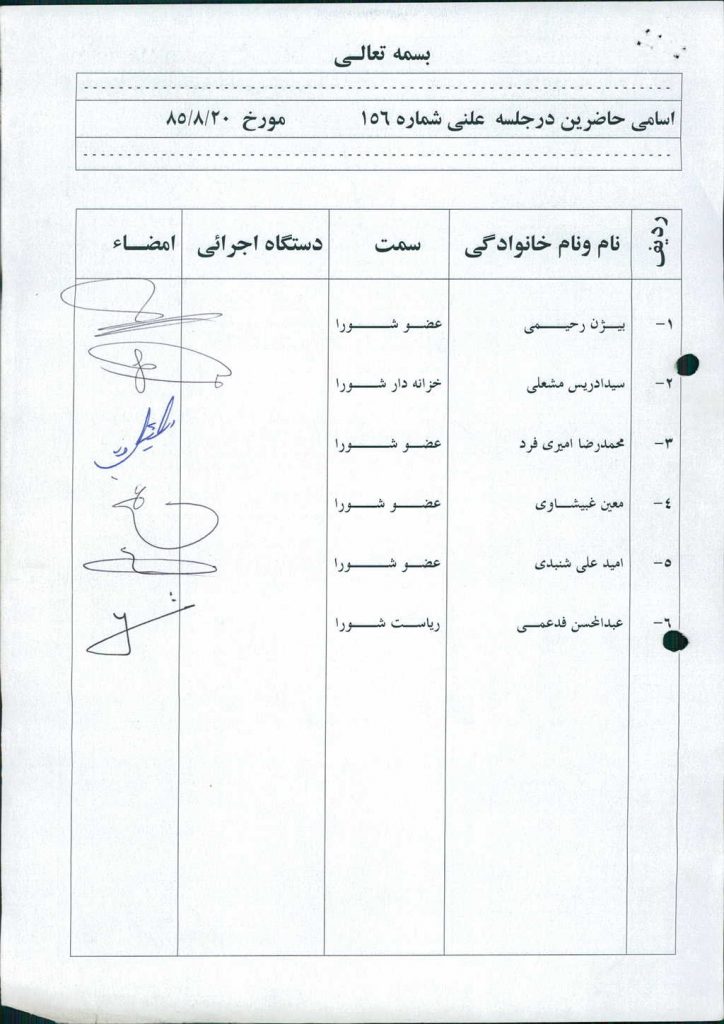 بسمه تعالی
اسامی حاضرین درجلسه علنی شماره ۱۵۶ مورخ ۸۵/۸/۲۰
ردیف نام ونام خانوادگی سمت دستگاه اجرائی امضاء
۱- بیژن رحیمی عضو شورا
۲- سیدادریس مشعلی خزانه دار شورا
۳- محمدرضا امیری فرد عضو شورا
۴- معین غبیشاوی عضو شورا
۵- امید علی شنبدی عضو شورا
۶- عبدالحسن فدعمی ریاست شورا